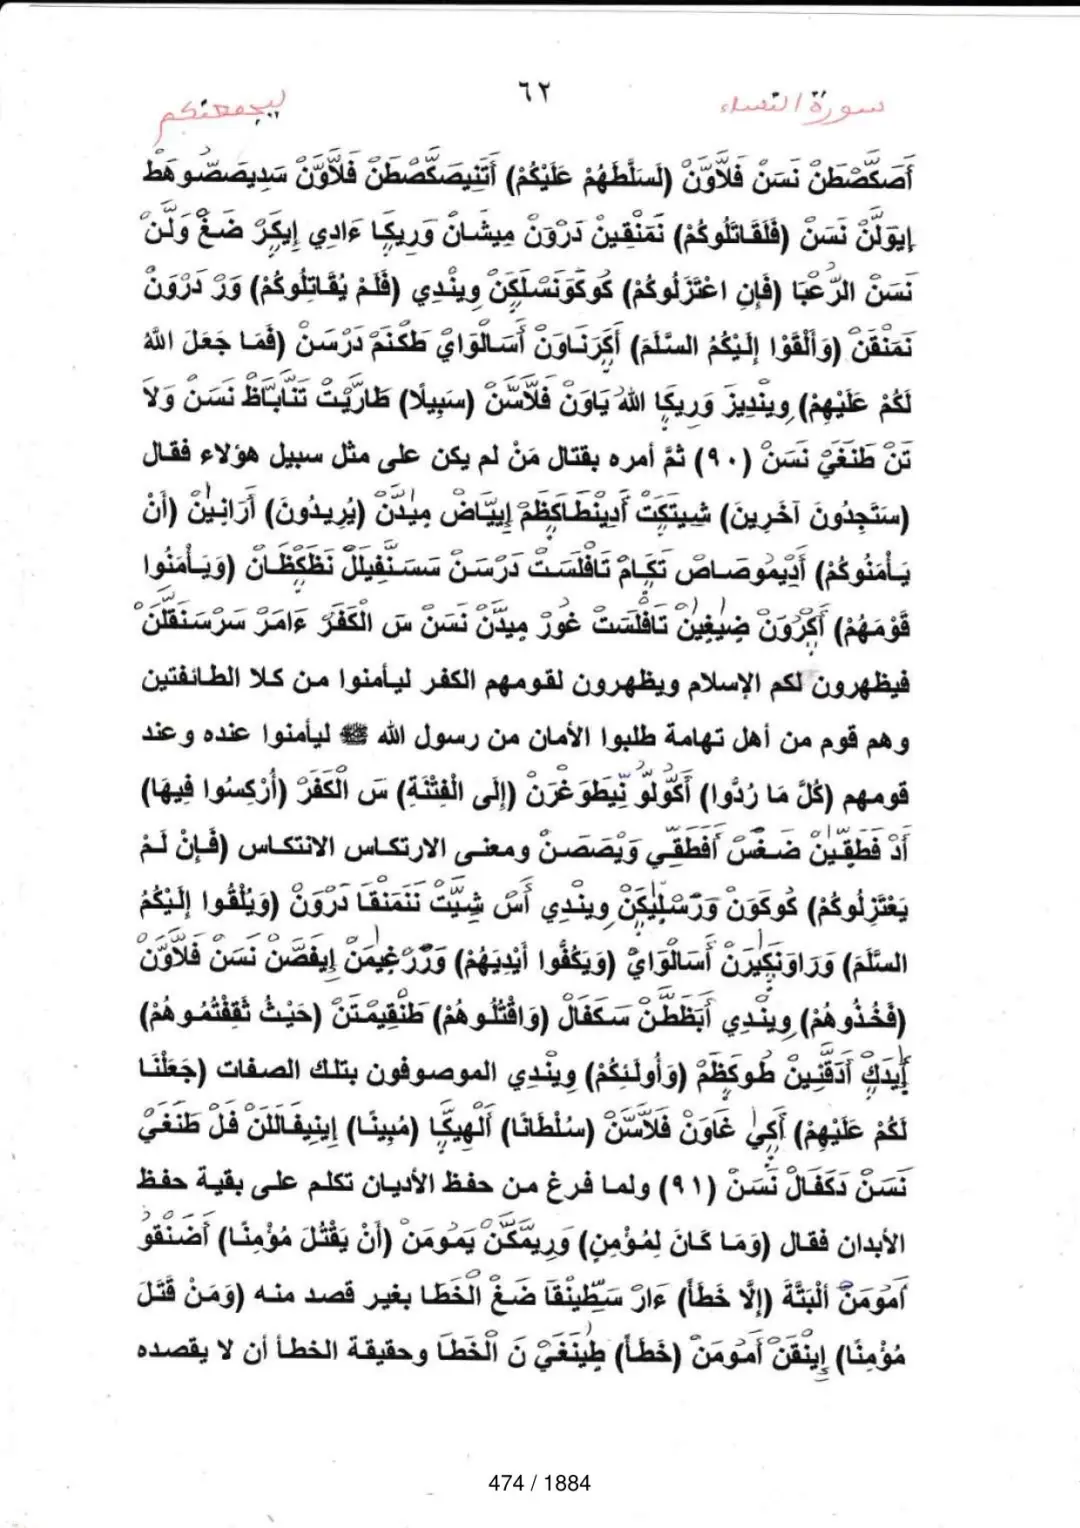 ليجمعنكم ٦٢ سورة النساء
أَصَكَّصْطَنْ نَسَنْ فَلَّاوَنْ (لَسَلَّطَهُمْ عَلَيْكُمْ) أَتَنِيصَكَّصْطَنْ فَلَّاوَنْ سَدِيصَصُّوهَطْ
إِيوَلَّنْ نَسَنْ (فَلَقَاتَلُوكُمْ) نَمَنْقِينْ دَرْوَنْ مِيشَانْ وَرِيكَا ءَادِي إِيكَرْ ضَغْ وَلَّنْ
نَسَنْ الرُّعْبَا (فَإِنِ اعْتَزَلُوكُمْ) كُوكَوَنْسَلَكَنْ وِينْدِي (فَلَمْ يُقَاتِلُوكُمْ) وَرْ دَرْوَنْ
نَمَنْقَنْ (وَأَلْقَوْا إِلَيْكُمُ السَّلَمَ) أَكَرَنَاوَنْ أَسَالْوَايْ طَكْنَمْ دَرْسَنْ (فَمَا جَعَلَ اللَّهُ
لَكُمْ عَلَيْهِمْ) وِينْدِيزَ وَرِيكَا اللهُ يَاوَنْ فَلَّاسَّنْ (سَبِيلًا) طَارَّيْتْ تَنَّابَّاظْ نَسَنْ وَلَا
تَنْ طَنَغَيْ نَسَنْ (٩٠) ثمَّ أمره بقتال مَنْ لم يكن على مثل سبيل هؤلاء فقال
(سَتَجِدُونَ آخَرِينَ) شِيتَكِتْ أَدِينْطَاكَظَمْ إِييَّاضْ مِيدَّنْ (يُرِيدُونَ) أَرَانِينْ (أَنْ
يَأْمَنُوكُمْ) أَدِيمُوصَاصْ تَكَامْ تَافْلَسْتْ دَرْسَنْ سَسَنَّفِيلَلْ نَظَكِظَانْ (وَيَأْمَنُوا
قَوْمَهُمْ) أَكْرَوَنْ ضِيغِينْ تَافْلَسْتْ غُورْ مِيدَّنْ نَسَنْ سَ الْكَفَرْ ءَامَرْ سَرْسَنَقْلَنْ
فيظهرون لكم الإسلام ويظهرون لقومهم الكفر ليأمنوا من كلا الطائفتين
وهم قوم من أهل تهامة طلبوا الأمان من رسول الله ﷺ ليأمنوا عنده وعند
قومهم (كُلَّ مَا رُدُّوا) أَكُولُو نِّيطَوَغْرَنْ (إِلَى الْفِتْنَةِ) سَ الْكَفَرْ (أُرْكِسُوا فِيهَا)
أَدْ فَطَقِّينْ ضَغَسْ أَفَطَقِّي وَيْصَصَنْ ومعنى الارتكاس الانتكاس (فَإِنْ لَمْ
يَعْتَزِلُوكُمْ) كُوكَوَنْ وَرْسْلِيكَنْ وِينْدِي أَسْ شِيَتْ نَنَمَنْقَا دَرْوَنْ (وَيُلْقُوا إِلَيْكُمُ
السَّلَمَ) وَرَاوَنْكِيرَنْ أَسَالْوَايْ (وَيَكُفُّوا أَيْدِيَهُمْ) وَرَّرْغِيمَنْ إِيفَصَّنْ نَسَنْ فَلَّاوَنْ
(فَخُذُوهُمْ) وِينْدِي أَبَظَطَّنْ سَكَفَالْ (وَاقْتُلُوهُمْ) طَنْقِيمْتَنْ (حَيْثُ ثَقِفْتُمُوهُمْ)
إِيدَكْ أَدَقَّنِينْ طُوكَظَمْ (وَأُولَئِكُمْ) وِينْدِي الموصوفون بتلك الصفات (جَعَلْنَا
لَكُمْ عَلَيْهِمْ) أَكِي غَاوَنْ فَلَّاسَّنْ (سُلْطَانًا) أَلْهِيكَّا (مُبِينًا) إِينِيفَالَلَنْ فَلْ طَنَغَيْ
نَسَنْ دَكَفَالْ نَسَنْ (٩١) ولما فرغ من حفظ الأديان تكلم على بقية حفظ
الأبدان فقال (وَمَا كَانَ لِمُؤْمِنٍ) وَرِيمَّكَنْ يَمُومَنْ (أَنْ يَقْتُلَ مُؤْمِنًا) أَضَنْقُو
أَمُومَنْ أَلْبَتَّةَ (إِلَّا خَطَأً) ءَارْ سَطِّينْقَا ضَغْ الْخَطَا بغير قصد منه (وَمَنْ قَتَلَ
مُؤْمِنًا) إِينْقَنْ أَمُومَنْ (خَطَأً) طِينَغَيْ نَ الْخَطَا وحقيقة الخطأ أن لا يقصده
474 / 1884